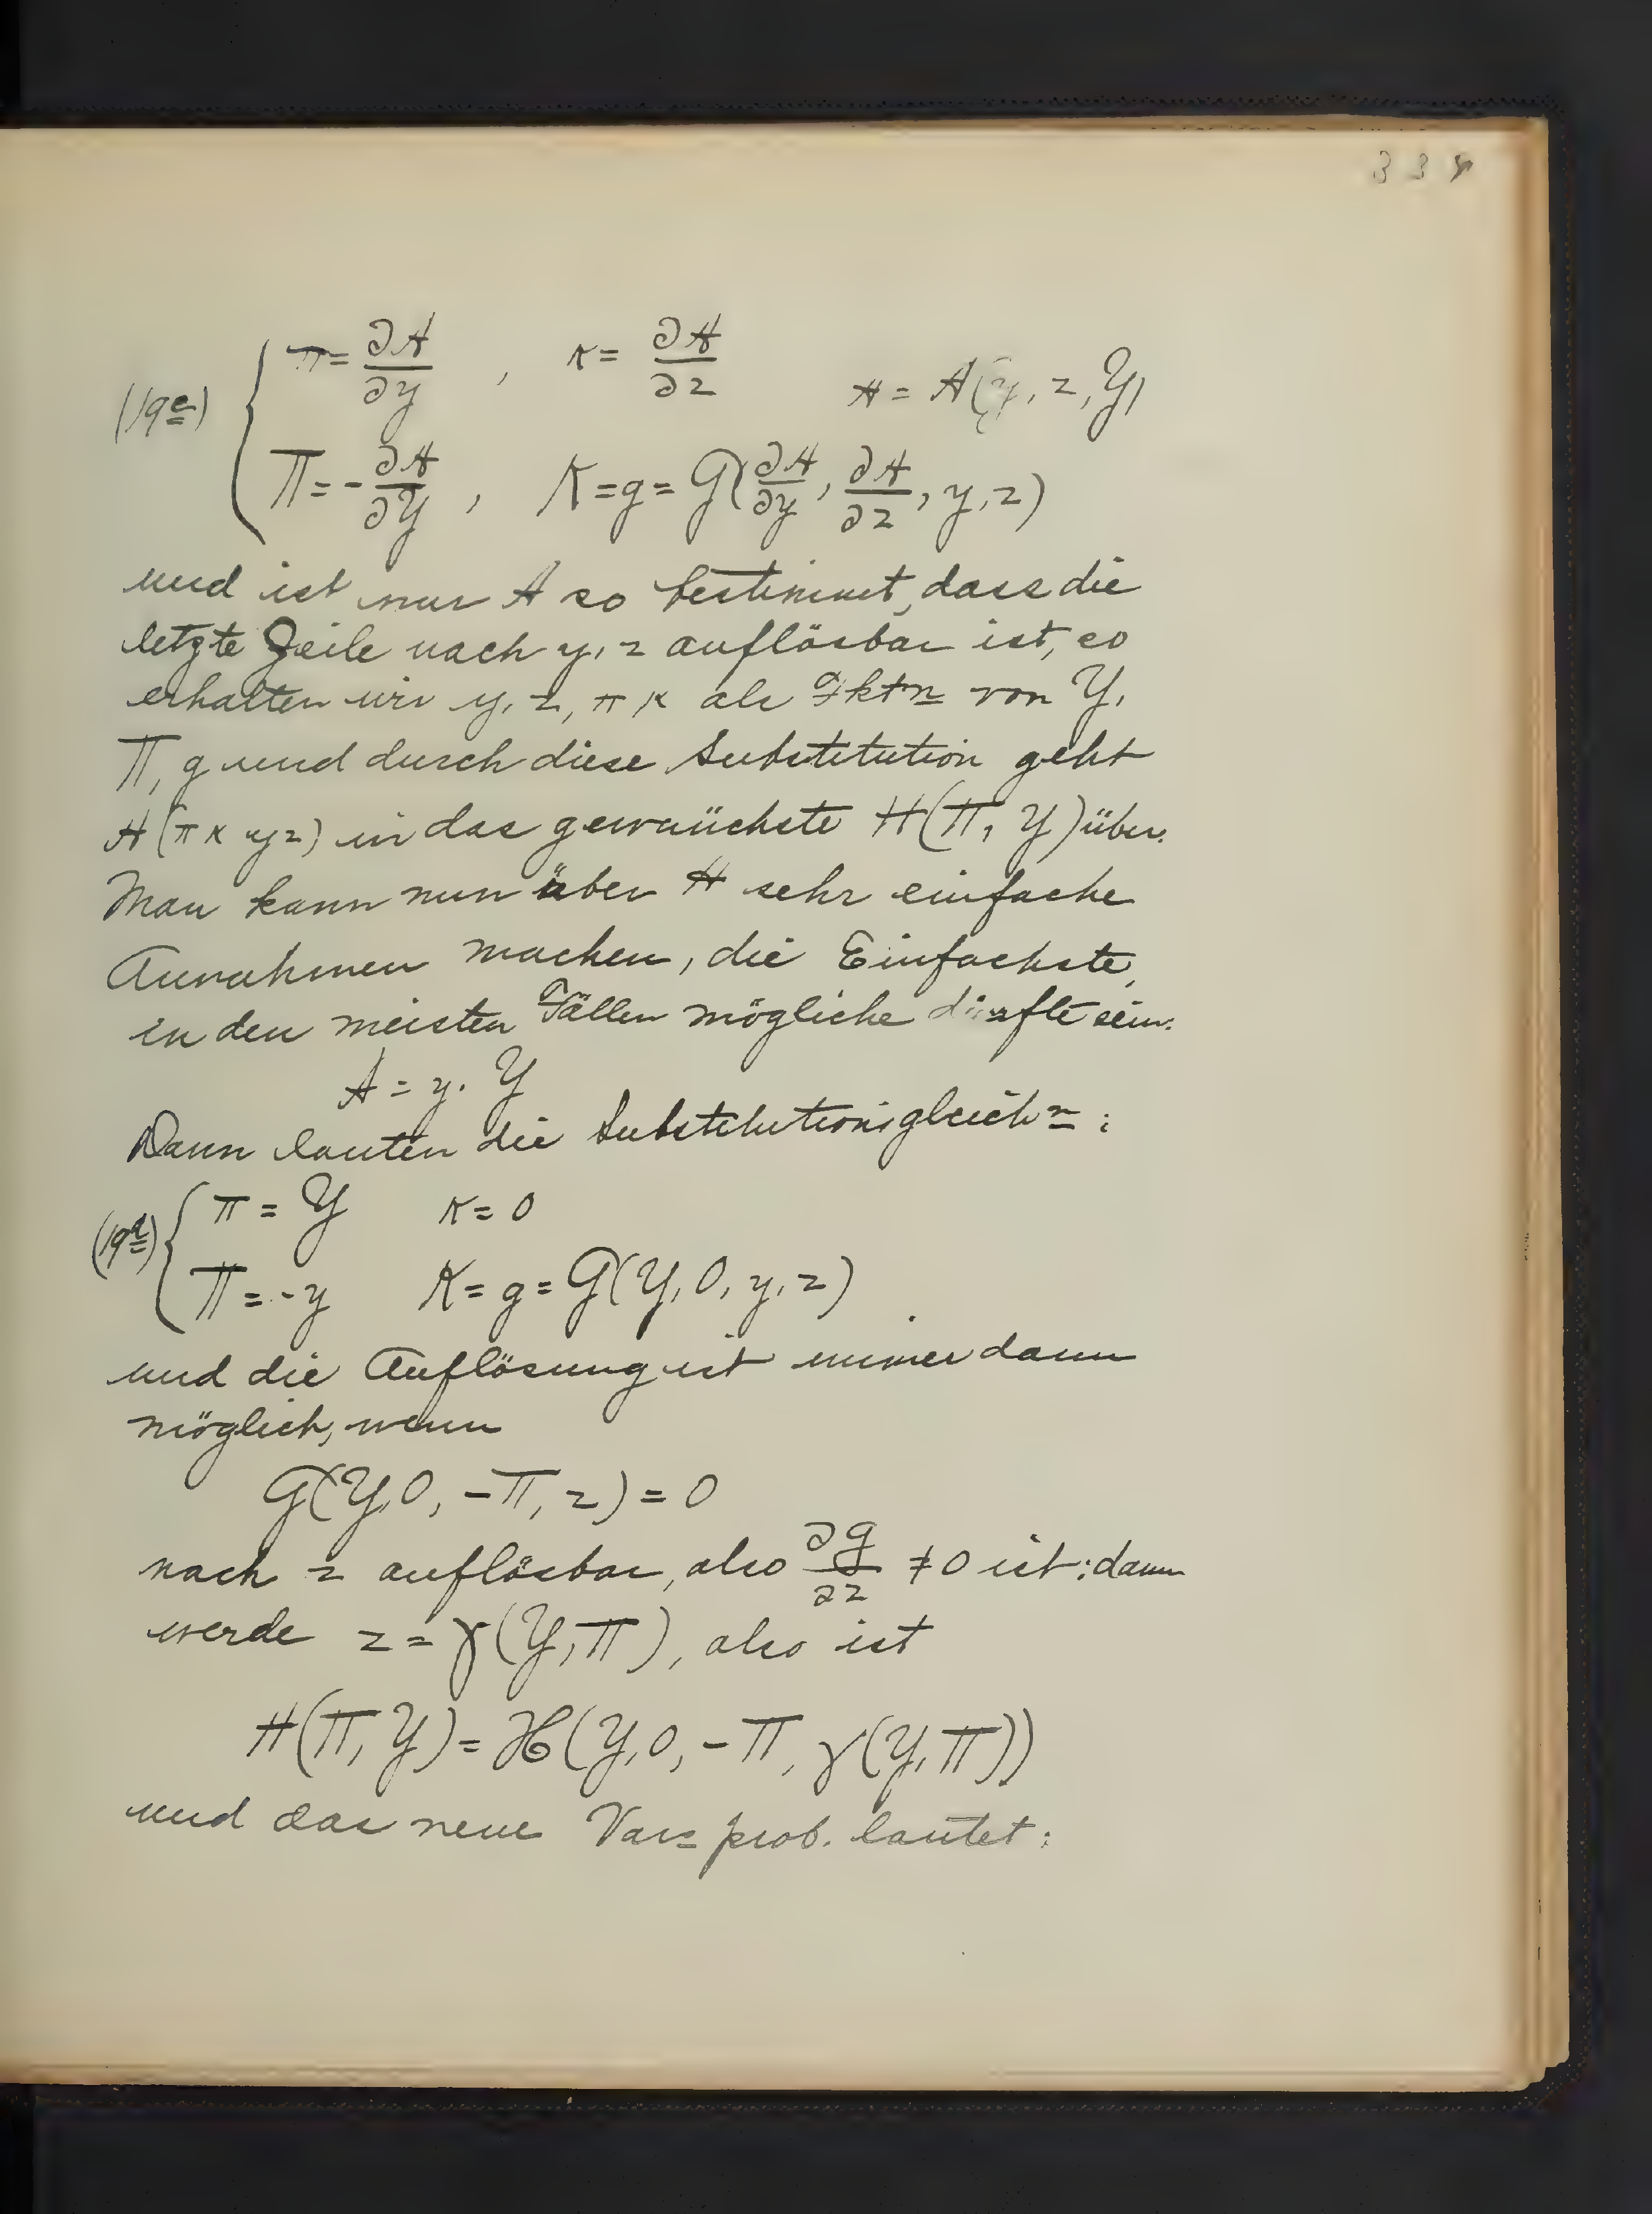 (19e) { π = ∂A/∂y , κ = ∂A/∂z A = A(y, z, Y)
Π = -∂A/∂Y , K = g = G(∂A/∂y, ∂A/∂z, y, z)
und ist nur A so bestimmt, dass die
letzte Zeile nach y, z auflösbar ist, so
erhalten wir y, z, π κ als Fktn von Y,
Π, g und durch diese Substitution geht
H(π κ y z) in das gewünschte H(Π, Y) über.
Man kann nun über A sehr einfache
Annahmen machen, die Einfachste,
in den meisten Fällen mögliche dürfte sein:
A = y. Y
Dann lauten die Substitutionsgleichn:
{ π = Y κ = 0
Π = -y K = g = G(Y, 0, y, z)
und die Auflösung ist immer dann
möglich, wenn
G(Y, 0, -Π, z) = 0
nach z auflösbar, also ∂G/∂z ≠ 0 ist; dann
werde z = γ(Y, Π), also ist
H(Π, Y) = H(Y, 0, -Π, γ(Y, Π))
und das neue Varsprob. lautet: